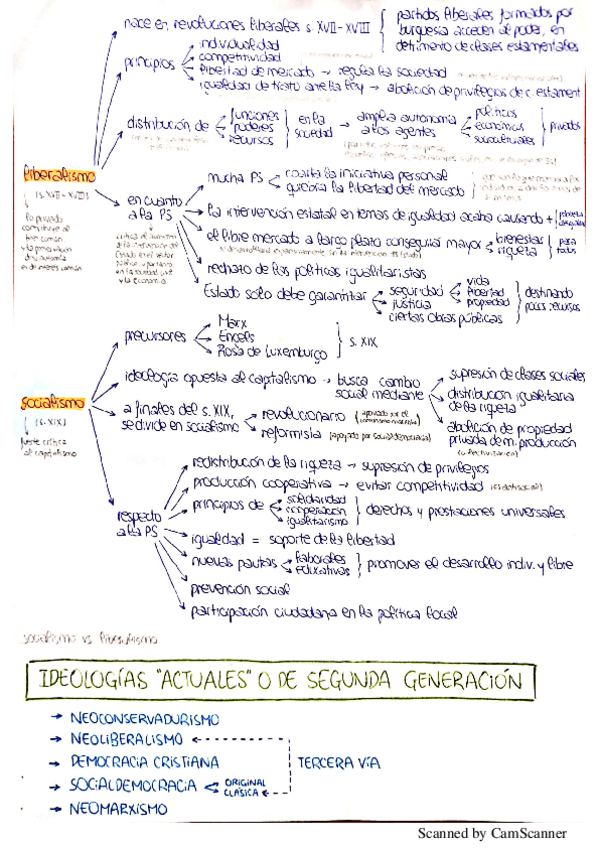 nace en revoluciones liberales s. XVII-XVIII { partidos liberales formados por
burguesía acceden al poder, en
detrimento de clases estamentales
principios
individualidad
competitividad
libertad de mercado → regula la sociedad
igualdad de trato ante la ley → abolición de privilegios de c. estament
distribución de
funciones
poderes
recursos
} en la
sociedad → amplia autonomía
a los agentes
políticos
económicos
socioculturales
} privados
liberalismo
(s. XVII-XVIII)
lo privado
contribuye al
bien común
en cuanto
a la PS
mucha PS
coarta la iniciativa personal
quiebra la libertad del mercado
la intervención estatal en temas de igualdad acaba causando +
el libre mercado a largo plazo conseguirá mayor
bienestar
riqueza
} para
todos
rechazo de las políticas igualitaristas
Estado sólo debe garantizar
seguridad
vida
libertad
propiedad
justicia
ciertas obras públicas
} destinando
pocos recursos
precursores
Marx
Engels
Rosa de Luxemburgo
} s. XIX
ideología opuesta al capitalismo → busca cambio
social mediante
supresión de clases sociales
distribución igualitaria
de la riqueza
abolición de propiedad
privada de m. producción
(colectivización)
socialismo
(s. XIX)
fuerte crítica
al capitalismo
a finales del s. XIX,
se divide en socialismo
revolucionario (apoyado por el
comunismo marxista)
reformista (apoyado por socialdemocracia)
respecto
a la PS
redistribución de la riqueza → supresión de privilegios
producción cooperativa → evitar competitividad
principios de
solidaridad
cooperación
igualitarismo
} derechos y prestaciones universales
igualdad = soporte de la libertad
nuevas pautas
laborales
educativas
} promover el desarrollo indiv. y libre
prevención social
participación ciudadana en la política social
socialismo vs liberalismo
IDEOLOGÍAS "ACTUALES" O DE SEGUNDA GENERACIÓN
→ NEOCONSERVADURISMO
→ NEOLIBERALISMO
→ DEMOCRACIA CRISTIANA
TERCERA VÍA
→ SOCIALDEMOCRACIA
ORIGINAL
CLÁSICA
→ NEOMARXISMO
Scanned by CamScanner